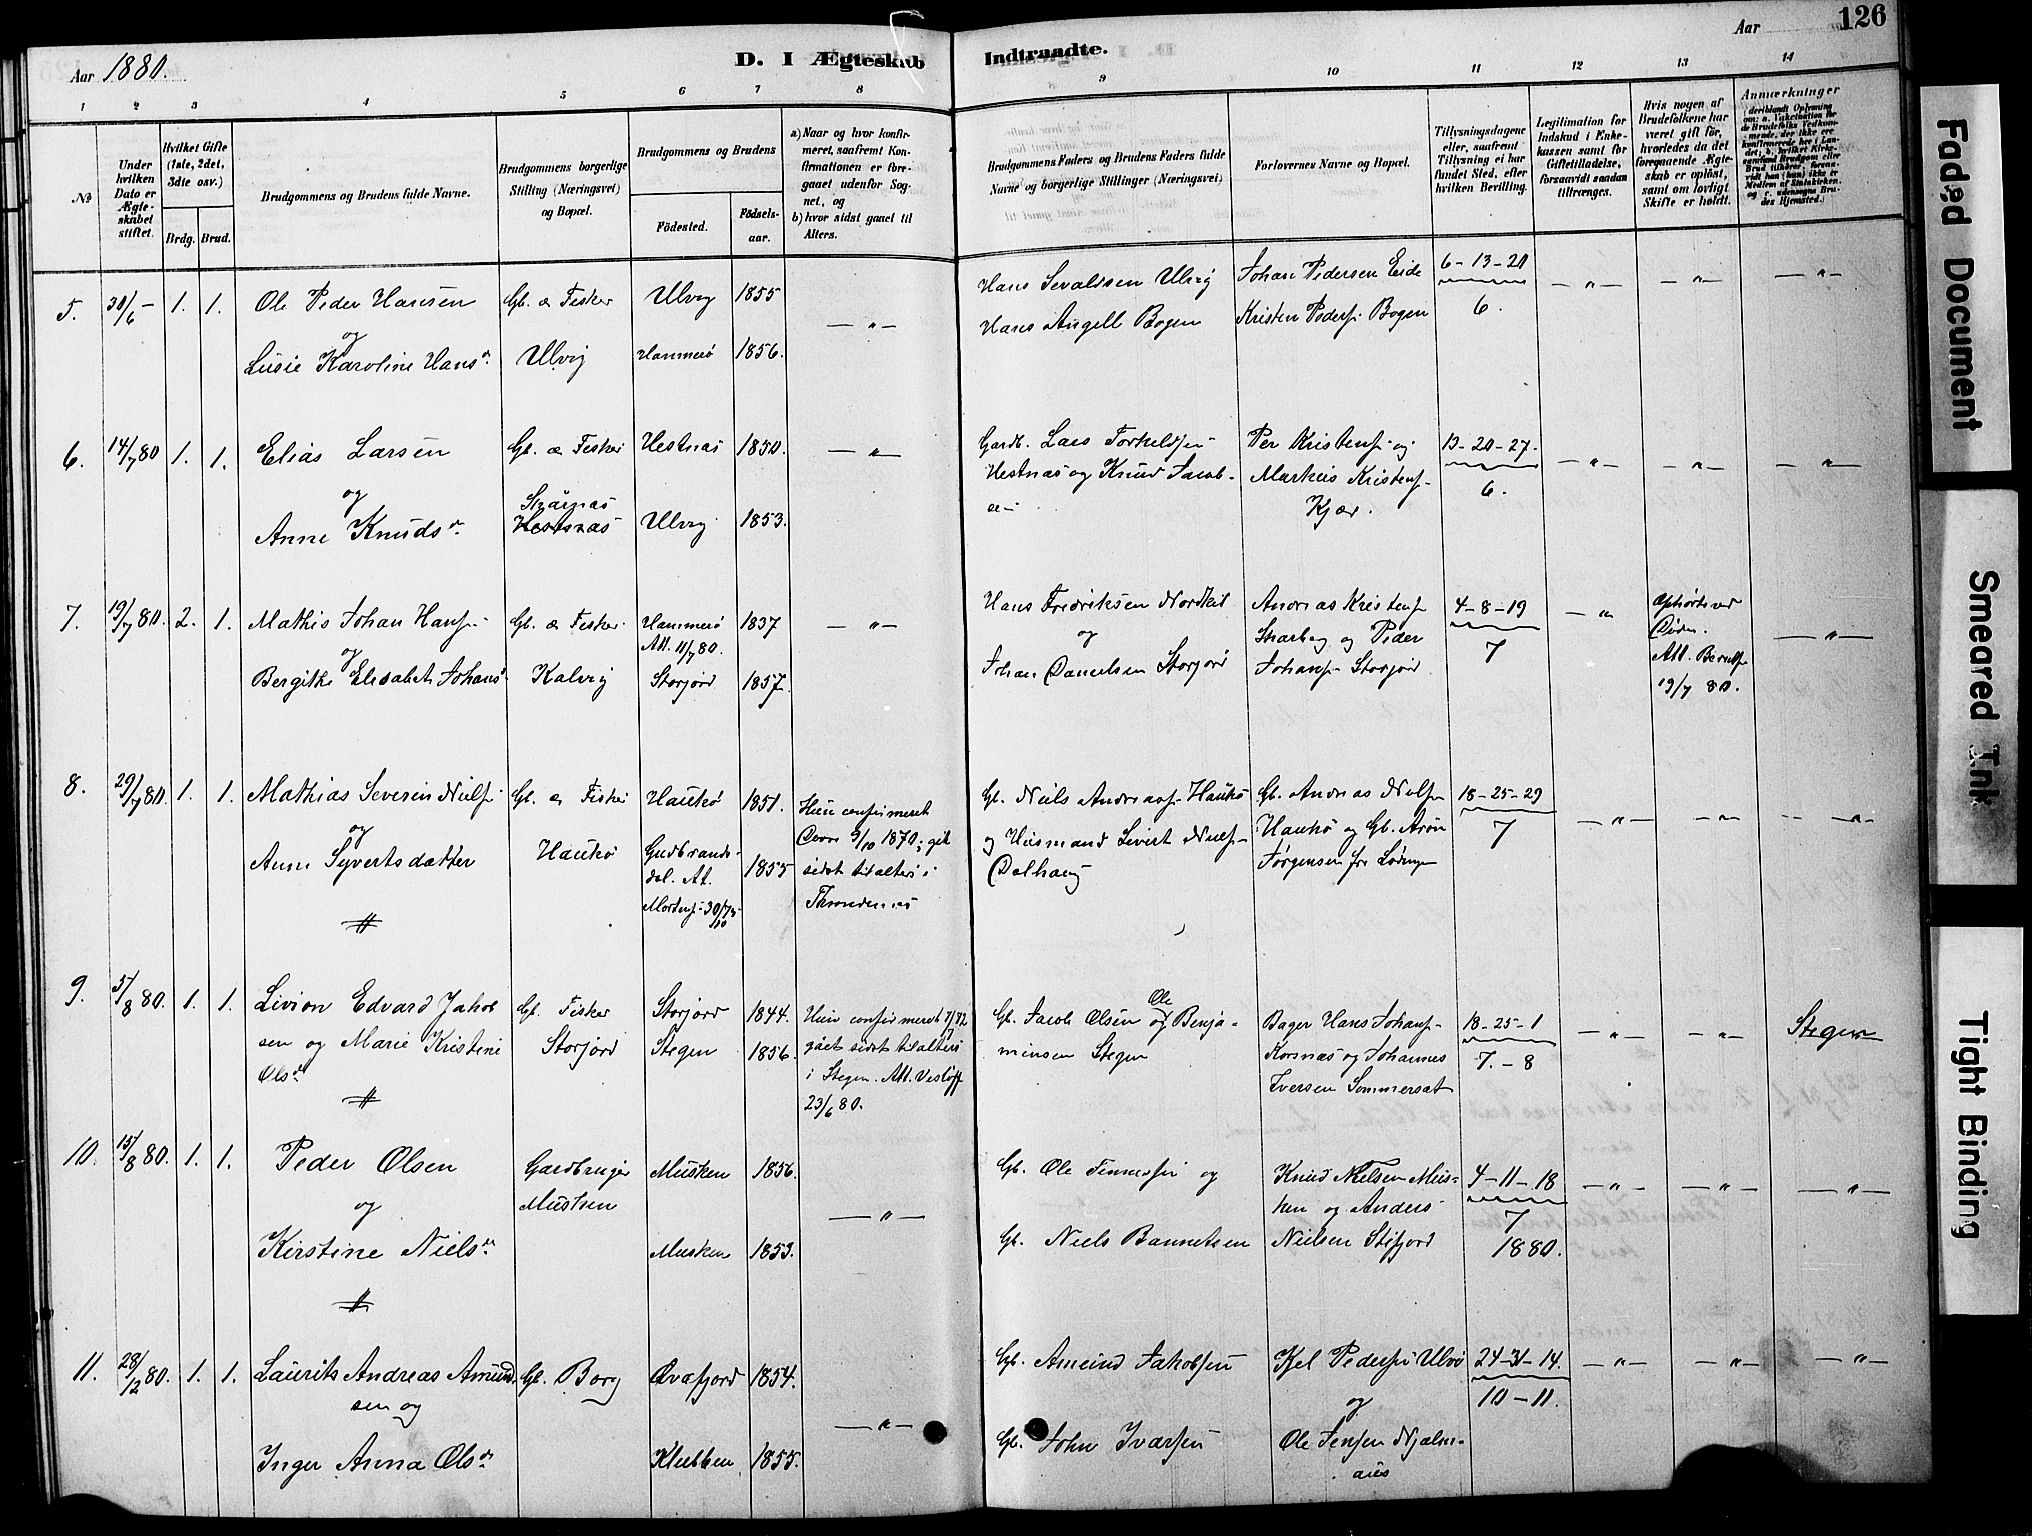 Aar 1880.
D. I Ægteskab
Indtraadte.
Aar
126
1 2 3 4 5 6 7 8 9 10 11 12 13 14
№
Under hvilken Dato er Ægteskabet stiftet.
Hvilket Gifte (1ste, 2det, 3die osv.)
Brdg. Brud.
Brudgommens og Brudens fulde Navne.
Brudgommens borgerlige Stilling (Næringsvei) og Bopæl.
Brudgommens og Brudens
Fødested.
Fødselsaar.
a) Naar og hvor konfirmeret, saafremt Konfirmationen er foregaaet udenfor Sognet, og
b) hvor sidst gaaet til Alters.
Brudgommens Faders og Brudens Faders fulde Navne og borgerlige Stillinger (Næringsvei)
Forlovernes Navne og Bopæl.
Tillysningsdagene eller, saafremt Tillysning ei har fundet Sted, efter hvilken Bevilling.
Legitimation for Indskud i Enkekassen samt for Giftetilladelse, forsaavidt saadan tiltrænges.
Hvis nogen af Brudefolkene har været gift før, hvorledes da det foregaaende Ægteskab er opløst, samt om lovligt Skifte er holdt.
Anmærkninger
5. 30/6 - 1. 1. Ole Peder Hansen Gb. & Fisker Ulvig 1855
og
Lusie Karoline Hansd. Ulvig Hammerø 1856.
Hans Sevaldsen Ulvig Johan Pedersen Eide 6-13-20
Hans Angell Bogen Kristen Peders. Bogen 6.
6. 14/7 80 1. 1. Elias Larsen Gb. & Fisker Hestnæs 1850.
og Skårnæs
Anne Knudsd. Hestnæs Ulvig 1853.
Gardb. Lars Torkeldsen Per Kristens. og 13-20-27.
Hestnæs og Knud Jacobsen Markus Kristens. 6.
Kjær.
7. 19/7 80. 2. 1. Mathis Johan Hans. Gb. & Fisker. Hammerø 1837
og Att. 11/7 80.
Bergitke Elisabet Johansd. Kalvig Storjord 1857.
Hans Fredriksen Nordkil Andreas Kristens. 4-8-19
og Skarberg og Peder 7
Johan Danielsen Storjord Johans. Storjord
19/7 80.
8. 29/7 80. 1. 1. Mathias Severin Niels. Gb. & Fisker Haukø 1851.
og
Anne Syvertsdatter Haukø Gudbrandsdal. At. 1855
Hun confirmeret
Dovre 9/10 1870; gik
sidst til alters i
Throndenæs
Gb. Niels Andreas. Haukø Gb. Andreas Niels. 18-25-29
og Husmand Sivert Niels. Haukø og Gb. Aron 7
Dalhaug Jørgensen fra Lødingen
9. 5/8 80. 1. 1. Livion Edvard Jakobsen og Marie Kristine Olsd. Gb. Fisker Storjord 1844.
Storjord Stegen 1856.
gået sidst til alters
i Stegen. Att. Vesløff
23/6 80.
Gb. Jacob Olsen og Ole Benjaminsen Stegen Bager Hans Johans. 18-25-1
Korsnæs og Johannes 7.-8
Iversen Sommersæt
Stegen
10. 15/8 80. 1. 1. Peder Olsen Gardbruger Musken 1856.
og Musken
Kirstine Nielsd. Musken 1853.
Gb. Ole Finnesen og Knud Nielsen Musken og Anders 4-11-18
Gb. Niels Bannetsen Nielsen Stifjord 7
1880.
11. 28/12 80. 1. 1. Laurits Andreas Amundsen og Gb. Borg Evafjord 1854.
Inger Anna Olsd. Klubben 1855.
Gb. Ameind Jakobsen Kjel Peders. Ulvø 24-31-14.
og 10-11.
Gb. John Ivarsen Ole Jensen Njalmaas
Faded Document
Smeared Ink
Tight Binding